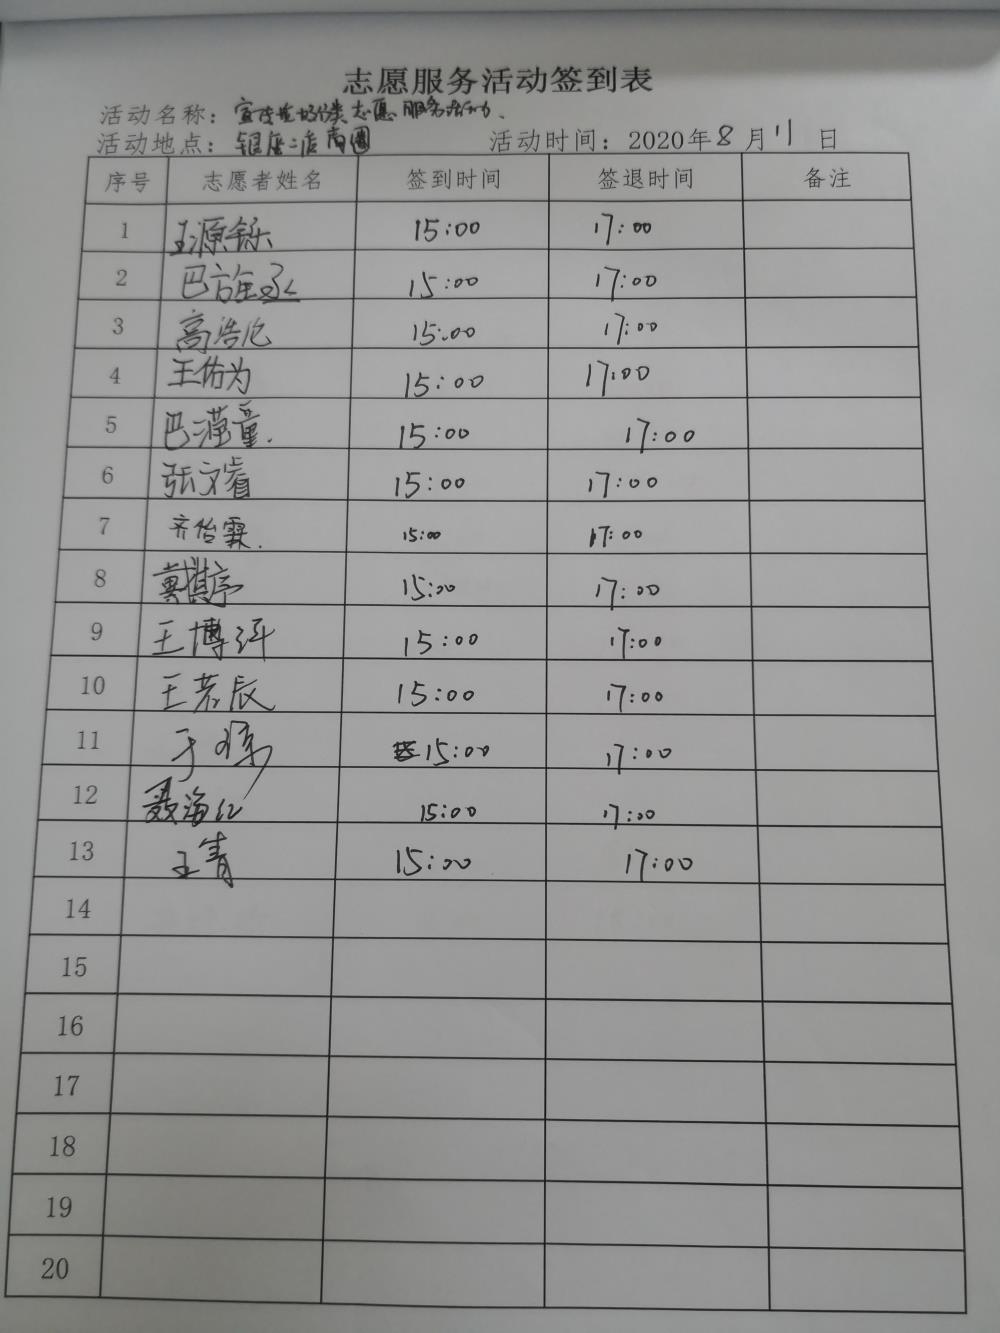 志愿服务活动签到表
活动名称：宣传垃圾分类志愿服务活动.
活动地点：银座二店商圈 活动时间：2020年8月11日
序号 志愿者姓名 签到时间 签退时间 备注
1 王源铄 15:00 17:00
2 巴方 15:00 17:00
3 高浩 15:00 17:00
4 王佑为 15:00 17:00
5 巴 童. 15:00 17:00
6 张文睿 15:00 17:00
7 齐怡霖. 15:00 17:00
8 15:00 17:00
9 王博 15:00 17:00
10 王若辰 15:00 17:00
11 于 15:00 17:00
12 聂海红 15:00 17:00
13 王青 15:00 17:00
14
15
16
17
18
19
20